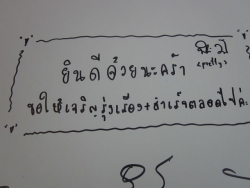 ยินดีด้วยนะคร้า
ขอให้เจริญรุ่งเรือง+สำเร็จตลอดไปค่ะ